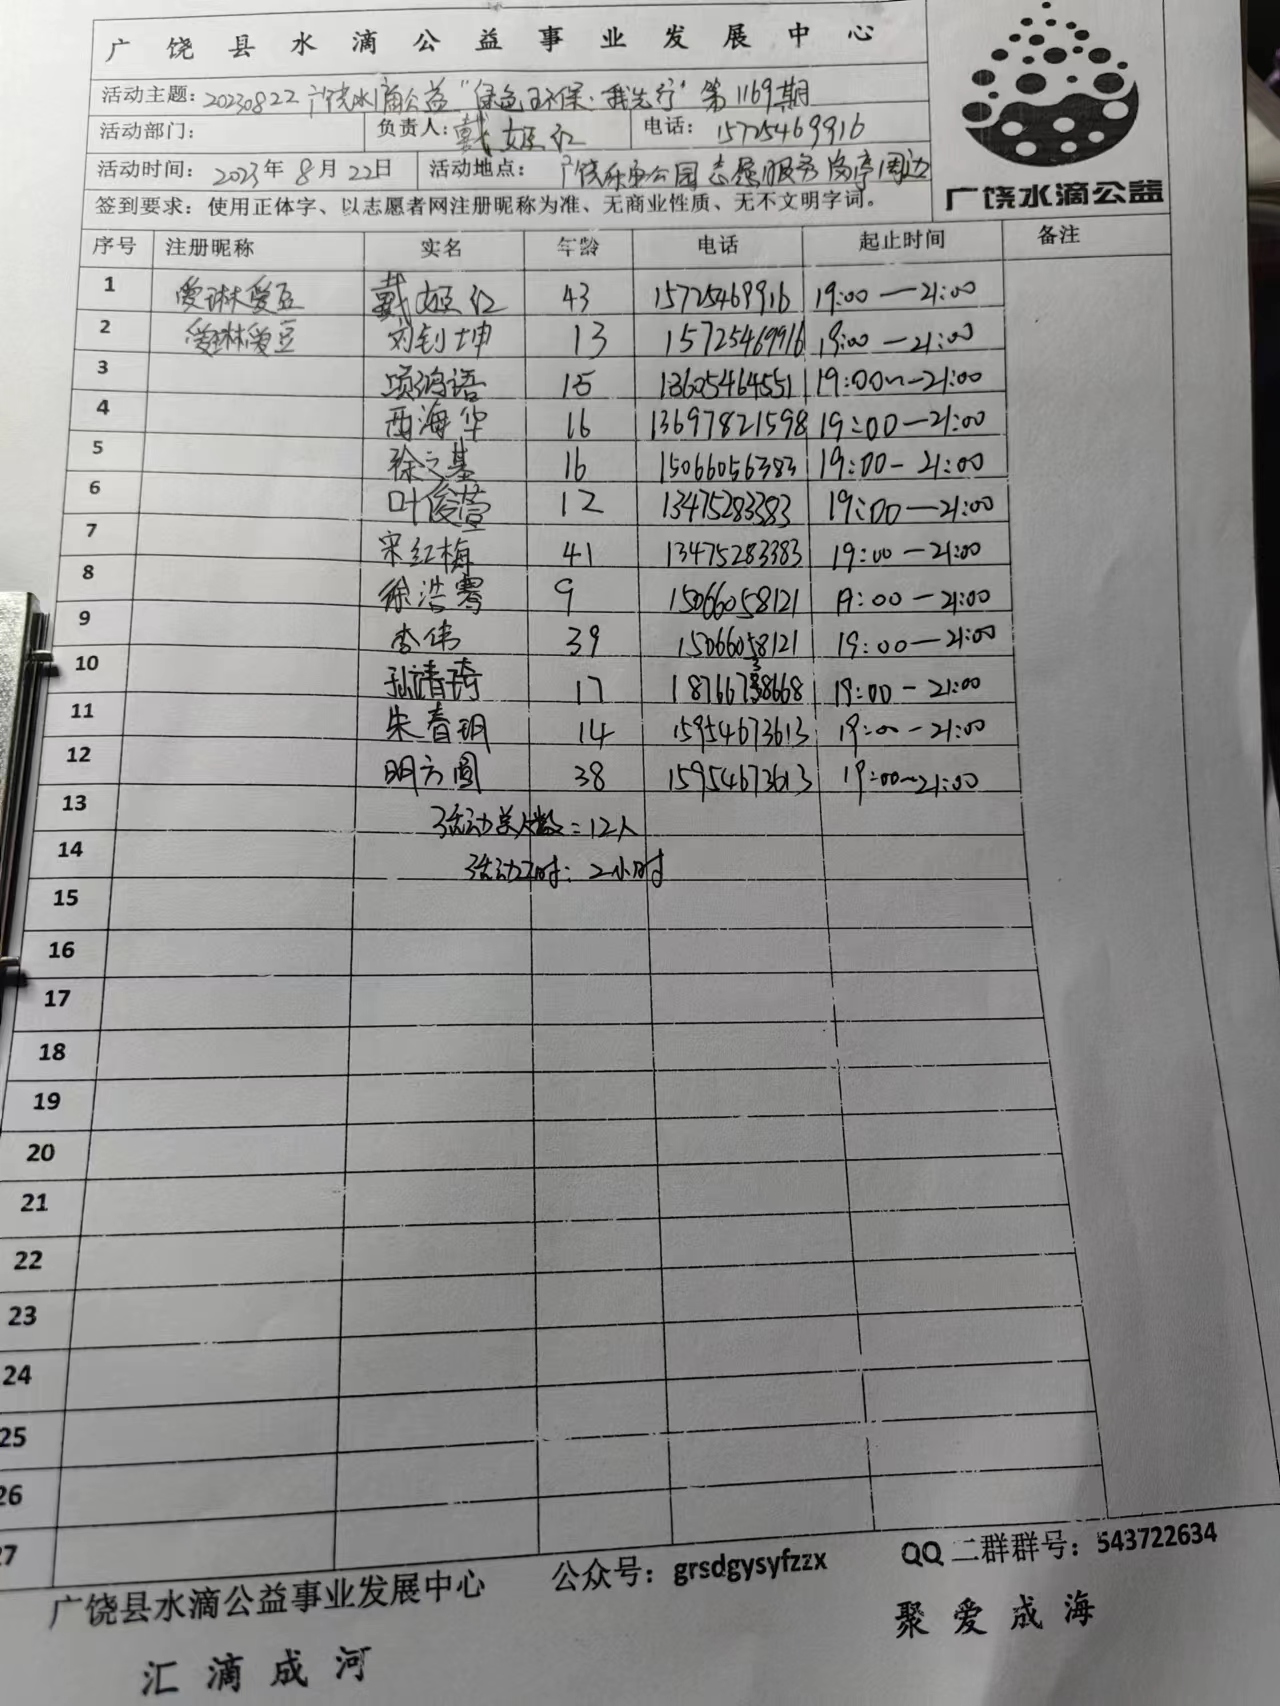 广饶县水滴公益事业发展中心
广饶水滴公益
活动主题：20230822广饶水滴公益"绿色环保·我先行"第1169期
活动部门： 负责人：戴姬红 电话：15725469916
活动时间：2023年8月22日 活动地点：广饶乐安公园志愿服务岗亭周边
签到要求：使用正体字、以志愿者网注册昵称为准、无商业性质、无不文明字词。
序号 注册昵称 实名 年龄 电话 起止时间 备注
1 爱琳爱豆 戴姬红 43 15725469916 19:00—21:00
2 爱琳爱豆 刘钊坤 13 15725469916 19:00—21:00
3 项鸿语 15 13605464551 19:00~—21:00
4 西海华 16 13697821598 19:00—21:00
5 徐文基 16 15066056383 19:00-21:00
6 叶俊萱 12 13475283383 19:00—21:00
7 宋红梅 41 13475283383 19:00—21:00
8 徐浩骞 9 15066058121 19:00—21:00
9 李伟 39 15066058121 19:00—21:00
10 孙靖琦 17 19:00-21:00
11 朱春玥 14 15954673613 19:00-21:00
12 明方圆 38 15954673613 19:00~21:00
13 活动总人数=12人
14 活动工时：2小时
15
16
17
18
19
20
21
22
23
24
25
26
27
广饶县水滴公益事业发展中心 公众号：grsdgysyfzzx QQ二群群号：543722634
汇滴成河 聚爱成海